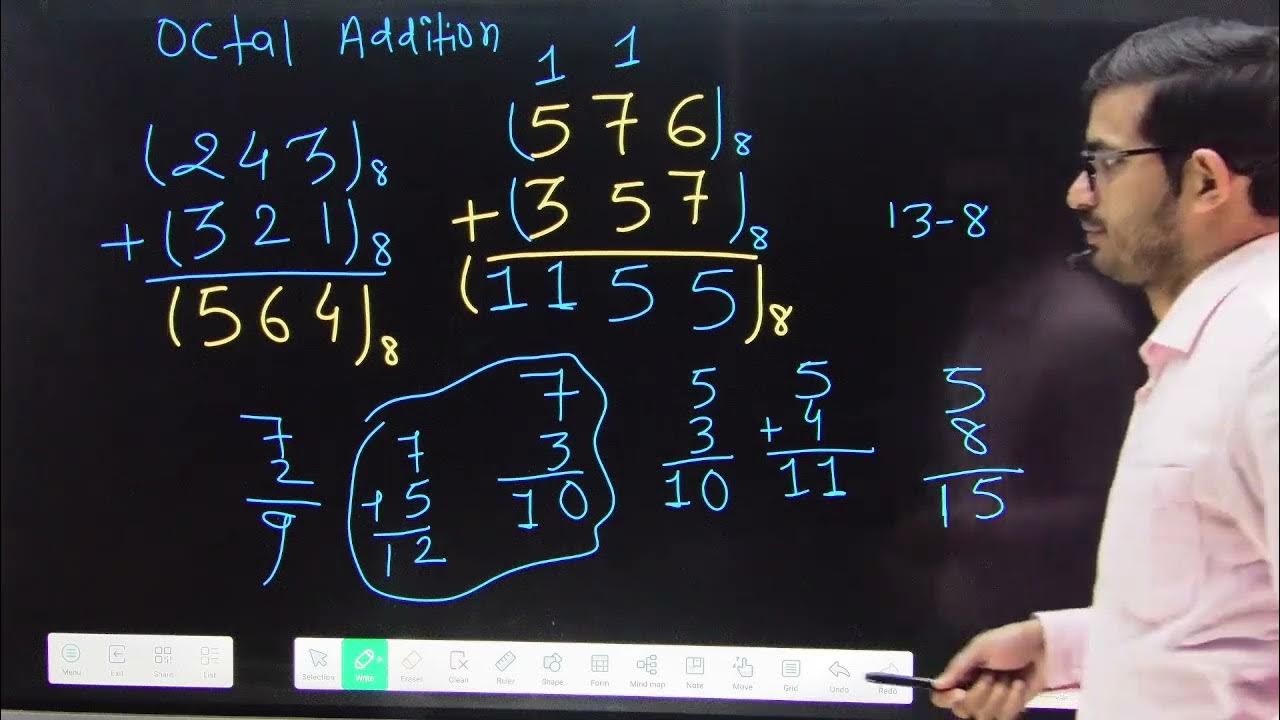 Octal Addition
(243)8
+ (321)8
(564)8
1 1
(576)8
+ (357)8
(1155)8
13-8
7
2
9
7
+5
12
7
3
10
5
3
10
5
+ 4
11
5
8
15
Menu Exit Share List
Selection Write Eraser Clean Ruler Shape Form Mind map Note Move Grid Undo Redo